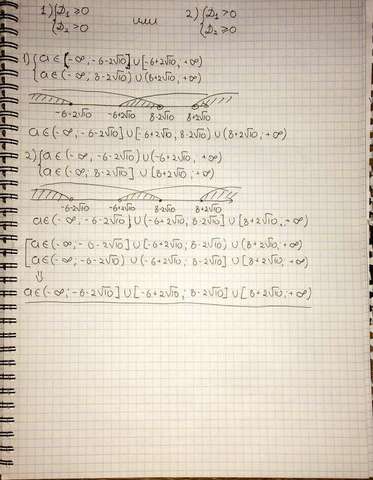 1) {D₁ ⩾ 0 или 2) {D₁ > 0
{D₂ > 0 {D₂ ⩾ 0
1) {a ∈ [-∞, -6-2√10] ∪ [-6+2√10, +∞)
{a ∈ (-∞, 8-2√10) ∪ (8+2√10, +∞)
-6-2√10 -6+2√10 8-2√10 8+2√10
a ∈ (-∞, -6-2√10] ∪ [-6+2√10, 8-2√10) ∪ (8+2√10; +∞)
2) {a ∈ (-∞, -6-2√10) ∪ (-6+2√10, +∞)
{a ∈ (-∞, 8-2√10] ∪ [8+2√10; +∞)
-6-2√10 -6+2√10 8-2√10 8+2√10
a ∈ (-∞, -6-2√10) ∪ (-6+2√10, 8-2√10] ∪ [8+2√10, +∞)
[a ∈ (-∞, -6-2√10] ∪ [-6+2√10; 8-2√10) ∪ (8+2√10; +∞)
[a ∈ (-∞; -6-2√10) ∪ (-6+2√10; 8-2√10] ∪ [8+2√10, +∞)
⇓
a ∈ (-∞; -6-2√10] ∪ [-6+2√10; 8-2√10] ∪ [8+2√10; +∞)